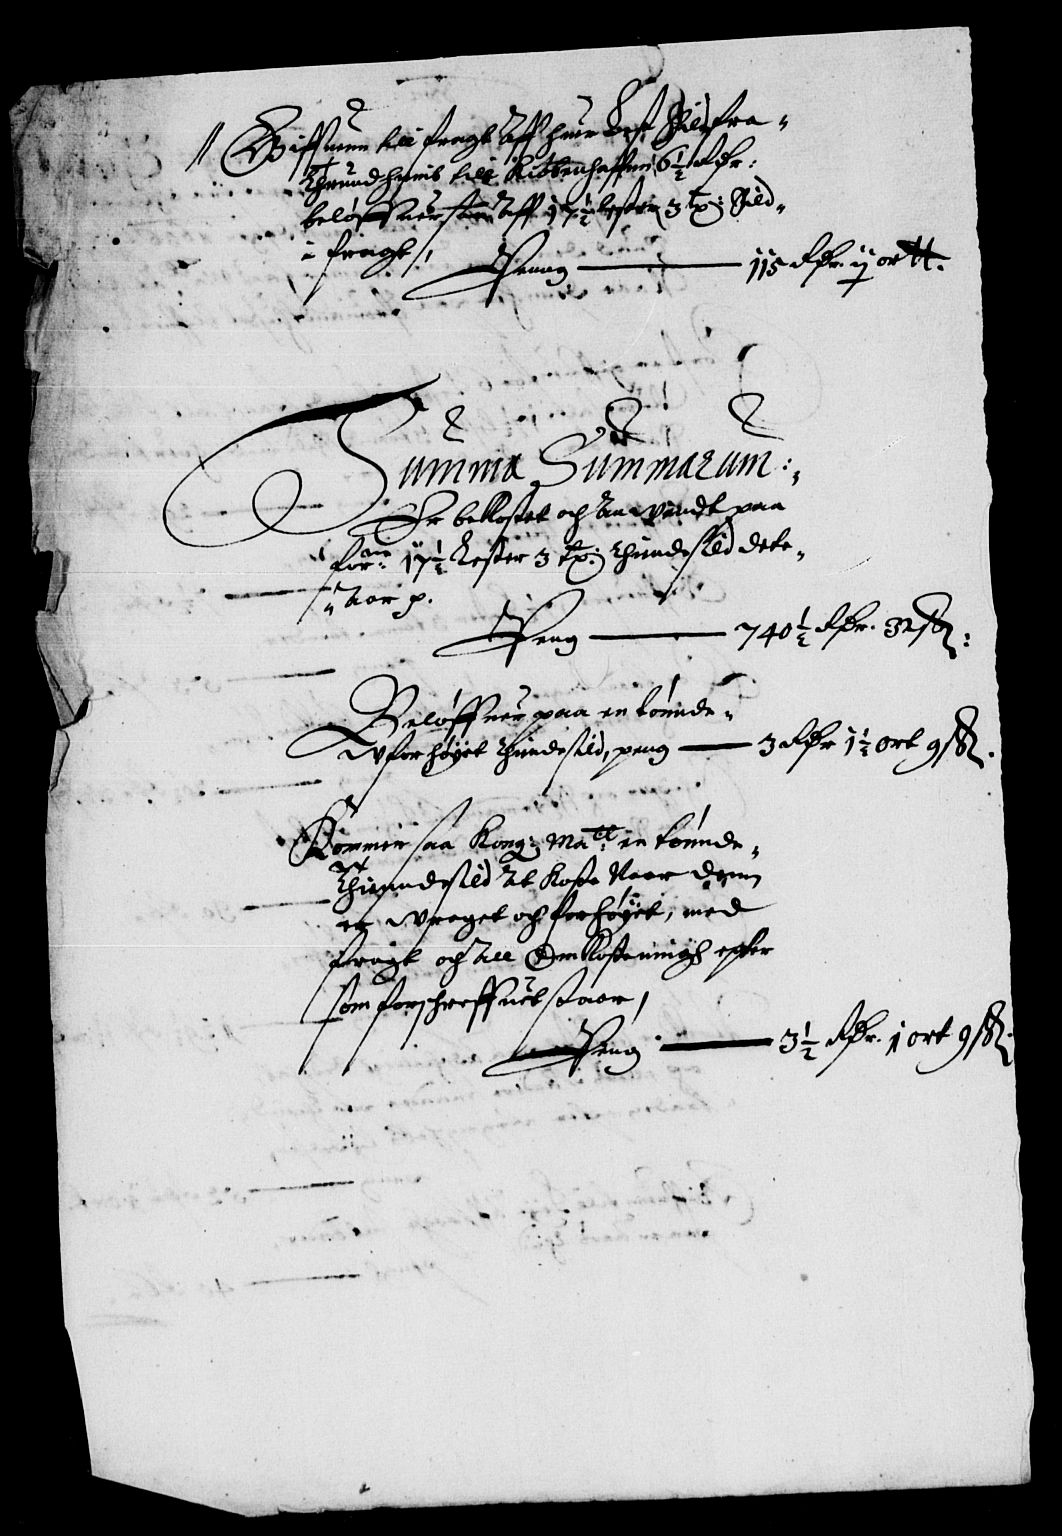 // Giffuen till fragt aff huer Lest Sild fra
Thrundhiemb till Kiøbenhaffuen 6½ Rdr:
beløffuer sig aff 17½ lester 3 tr: Sild
i fragt,
Penng — 115 Rdr. ij ortt.
Summa Summarum:
Er bekostet och anvendt paa
for:ne 17½ Lester 3 tr: thundesild dete
aar p.
Peng — 740½ Rdr. 32 sk:
Beløffuer paa en tønde
Uforhøyet thundesild, peng — 3 Rdr 1½ Ort 9 sk.
Kommer saa Kong: Ma:tt en tønde
Thunndesild at koste naar denn
er vraget och forhøyet, med
fragt och all Omkostningh epter
som forschreffuet staar,
Peng — 3½ Rdr. 1 ort 9 sk.